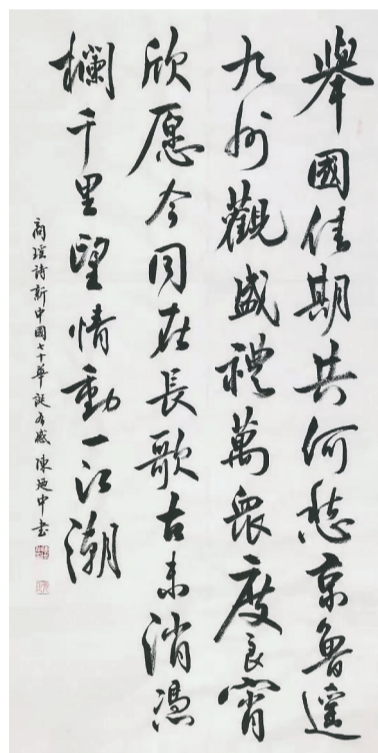 舉國佳期共何愁京魯遥
九州觀盛禮萬衆度良宵
欣愿今同在長歌古未消憑
欄千里望情動一江潮
詩新中國七十華誕有感 陳延中书